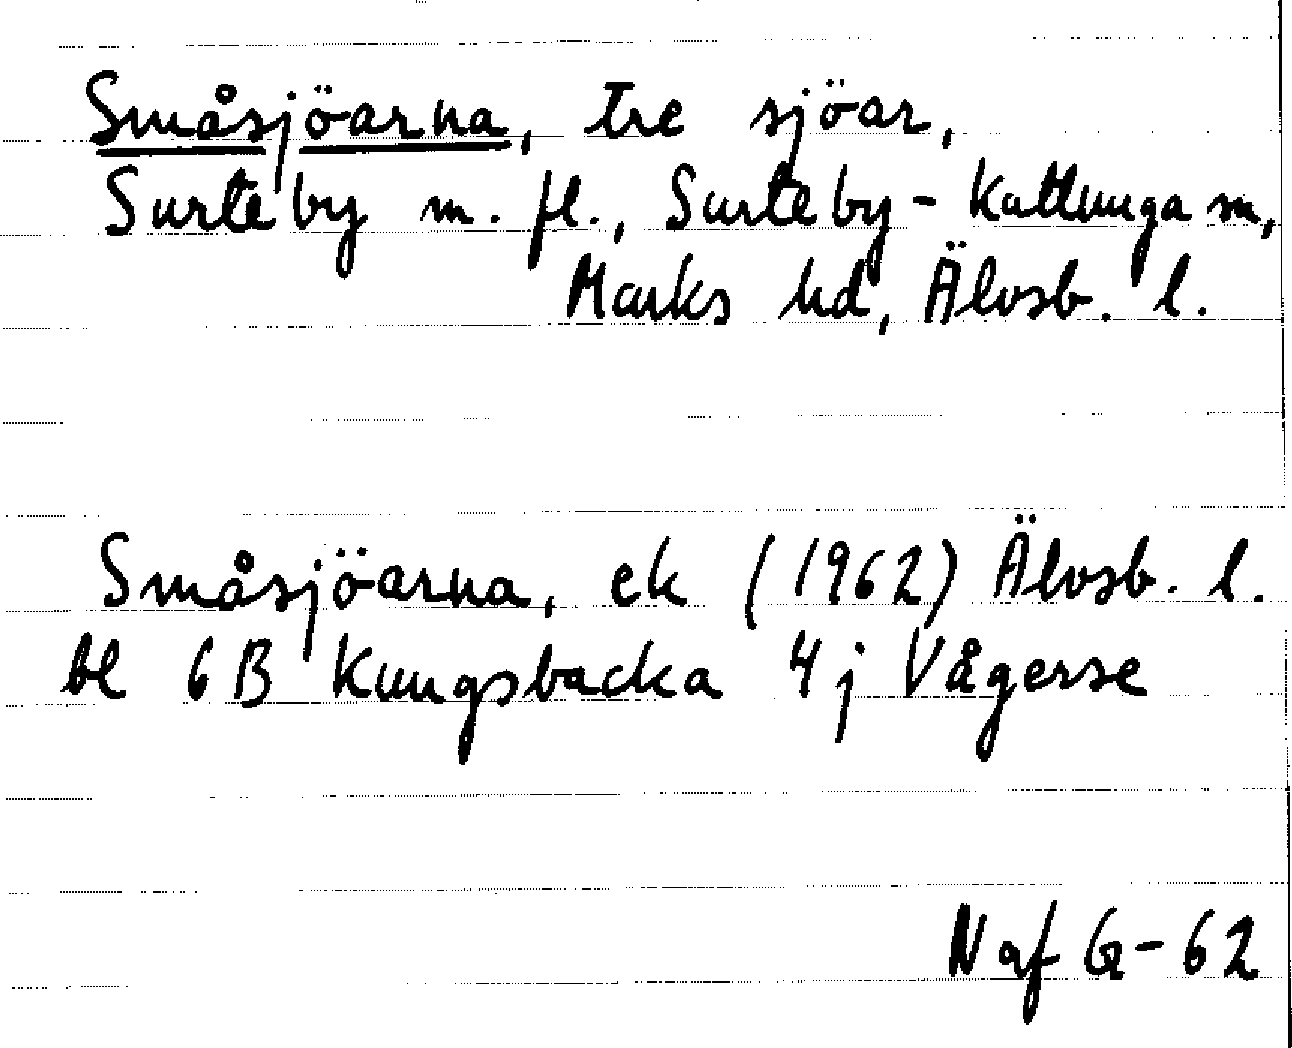 Småsjöarna, tre sjöar,
Surteby m. fl., Surteby-Kattunga sn,
Marks hd, Älvsb. l.
Småsjöarna, ek (1962) Älvsb. l.
bl 6 B Kungsbacka 4 j Vågerse
N af G-62